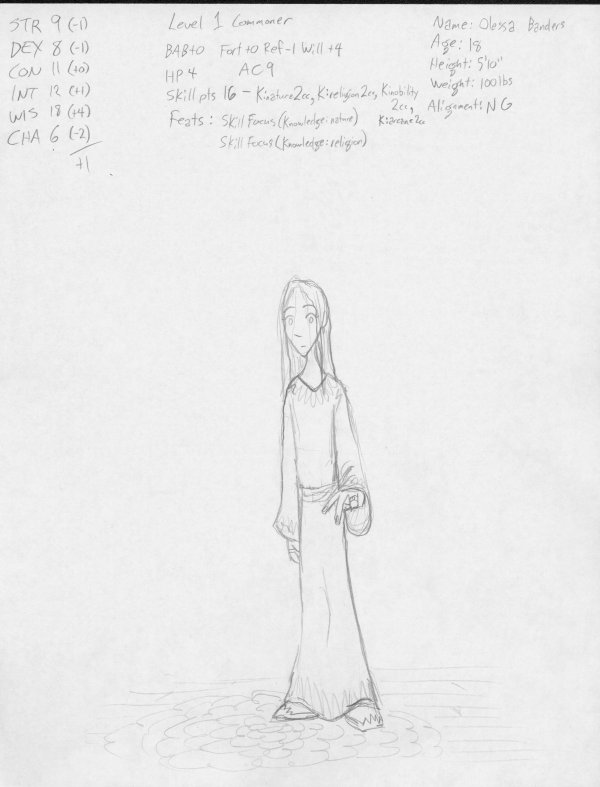 STR 9 (-1)
DEX 8 (-1)
CON 11 (+0)
INT 12 (+1)
WIS 18 (+4)
CHA 6 (-2)
+1
Level 1 Commoner
BAB+0 Fort+0 Ref-1 Will+4
HP 4 AC 9
Skill pts 16 - K:nature2cc, K:religion2cc, K:nobility
2cc,
K:arcane2cc
Feats: Skill Focus (Knowledge: nature)
Skill Focus (Knowledge: religion)
Name: Olessa Banders
Age: 18
Height: 5'10"
Weight: 100lbs
Alignment: NG